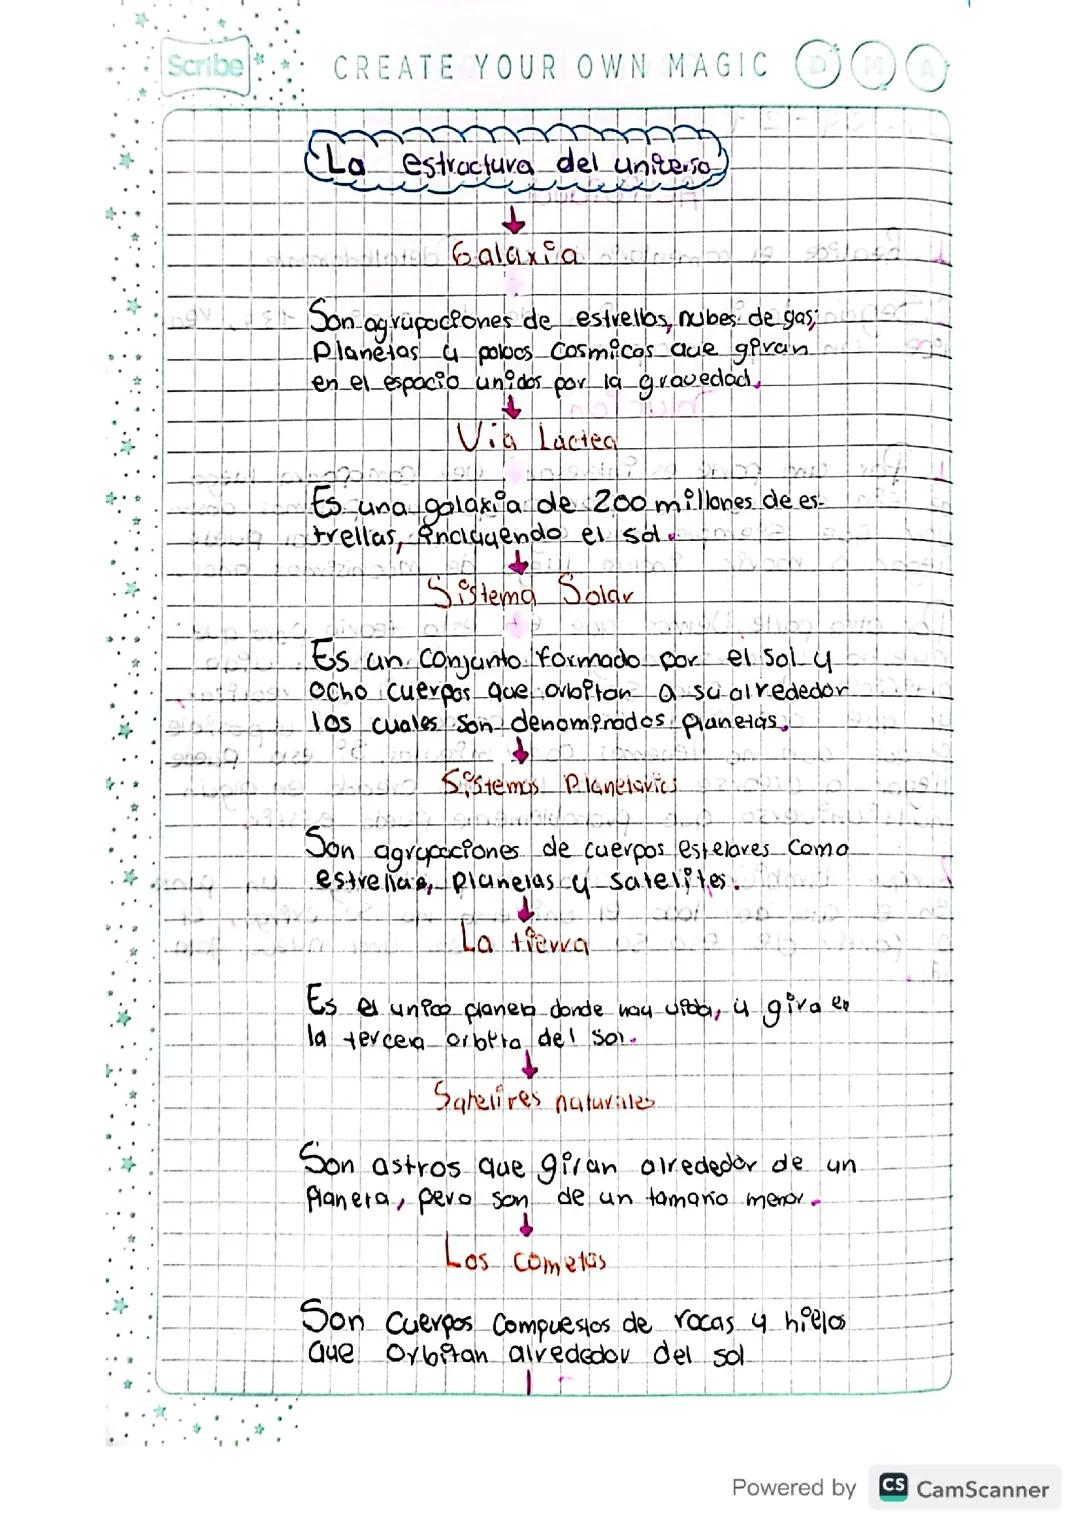 Scribe
CREATE YOUR OWN MAGIC D M A
La estructura del universo
Galaxia
Son agrupaciones de estrellas, nubes de gas,
Planetas y polvos Cosmicos que giran
en el espacio unidos por la gravedad.
Via Lactea
Es una galaxia de 200 millones de es-
trellas, incluyendo el sol.
Sistema Solar
Es un conjunto formado por el sol y
ocho cuerpos que orbitan a su alrededor
los cuales son denominados planetas.
Sistemas Planetarios
Son agrupaciones de cuerpos estelares Como
estrellas, Planetas y satelites.
La tierra
Es el unico planeta donde hay vida, y gira en
la tercera orbita del sol.
Satelites naturales
Son astros que giran alrededor de un
Planeta, pero son de un tamaño menor.
Los cometas
Son cuerpos compuestos de rocas y hielos
que orbitan alrededor del sol
Powered by CS CamScanner